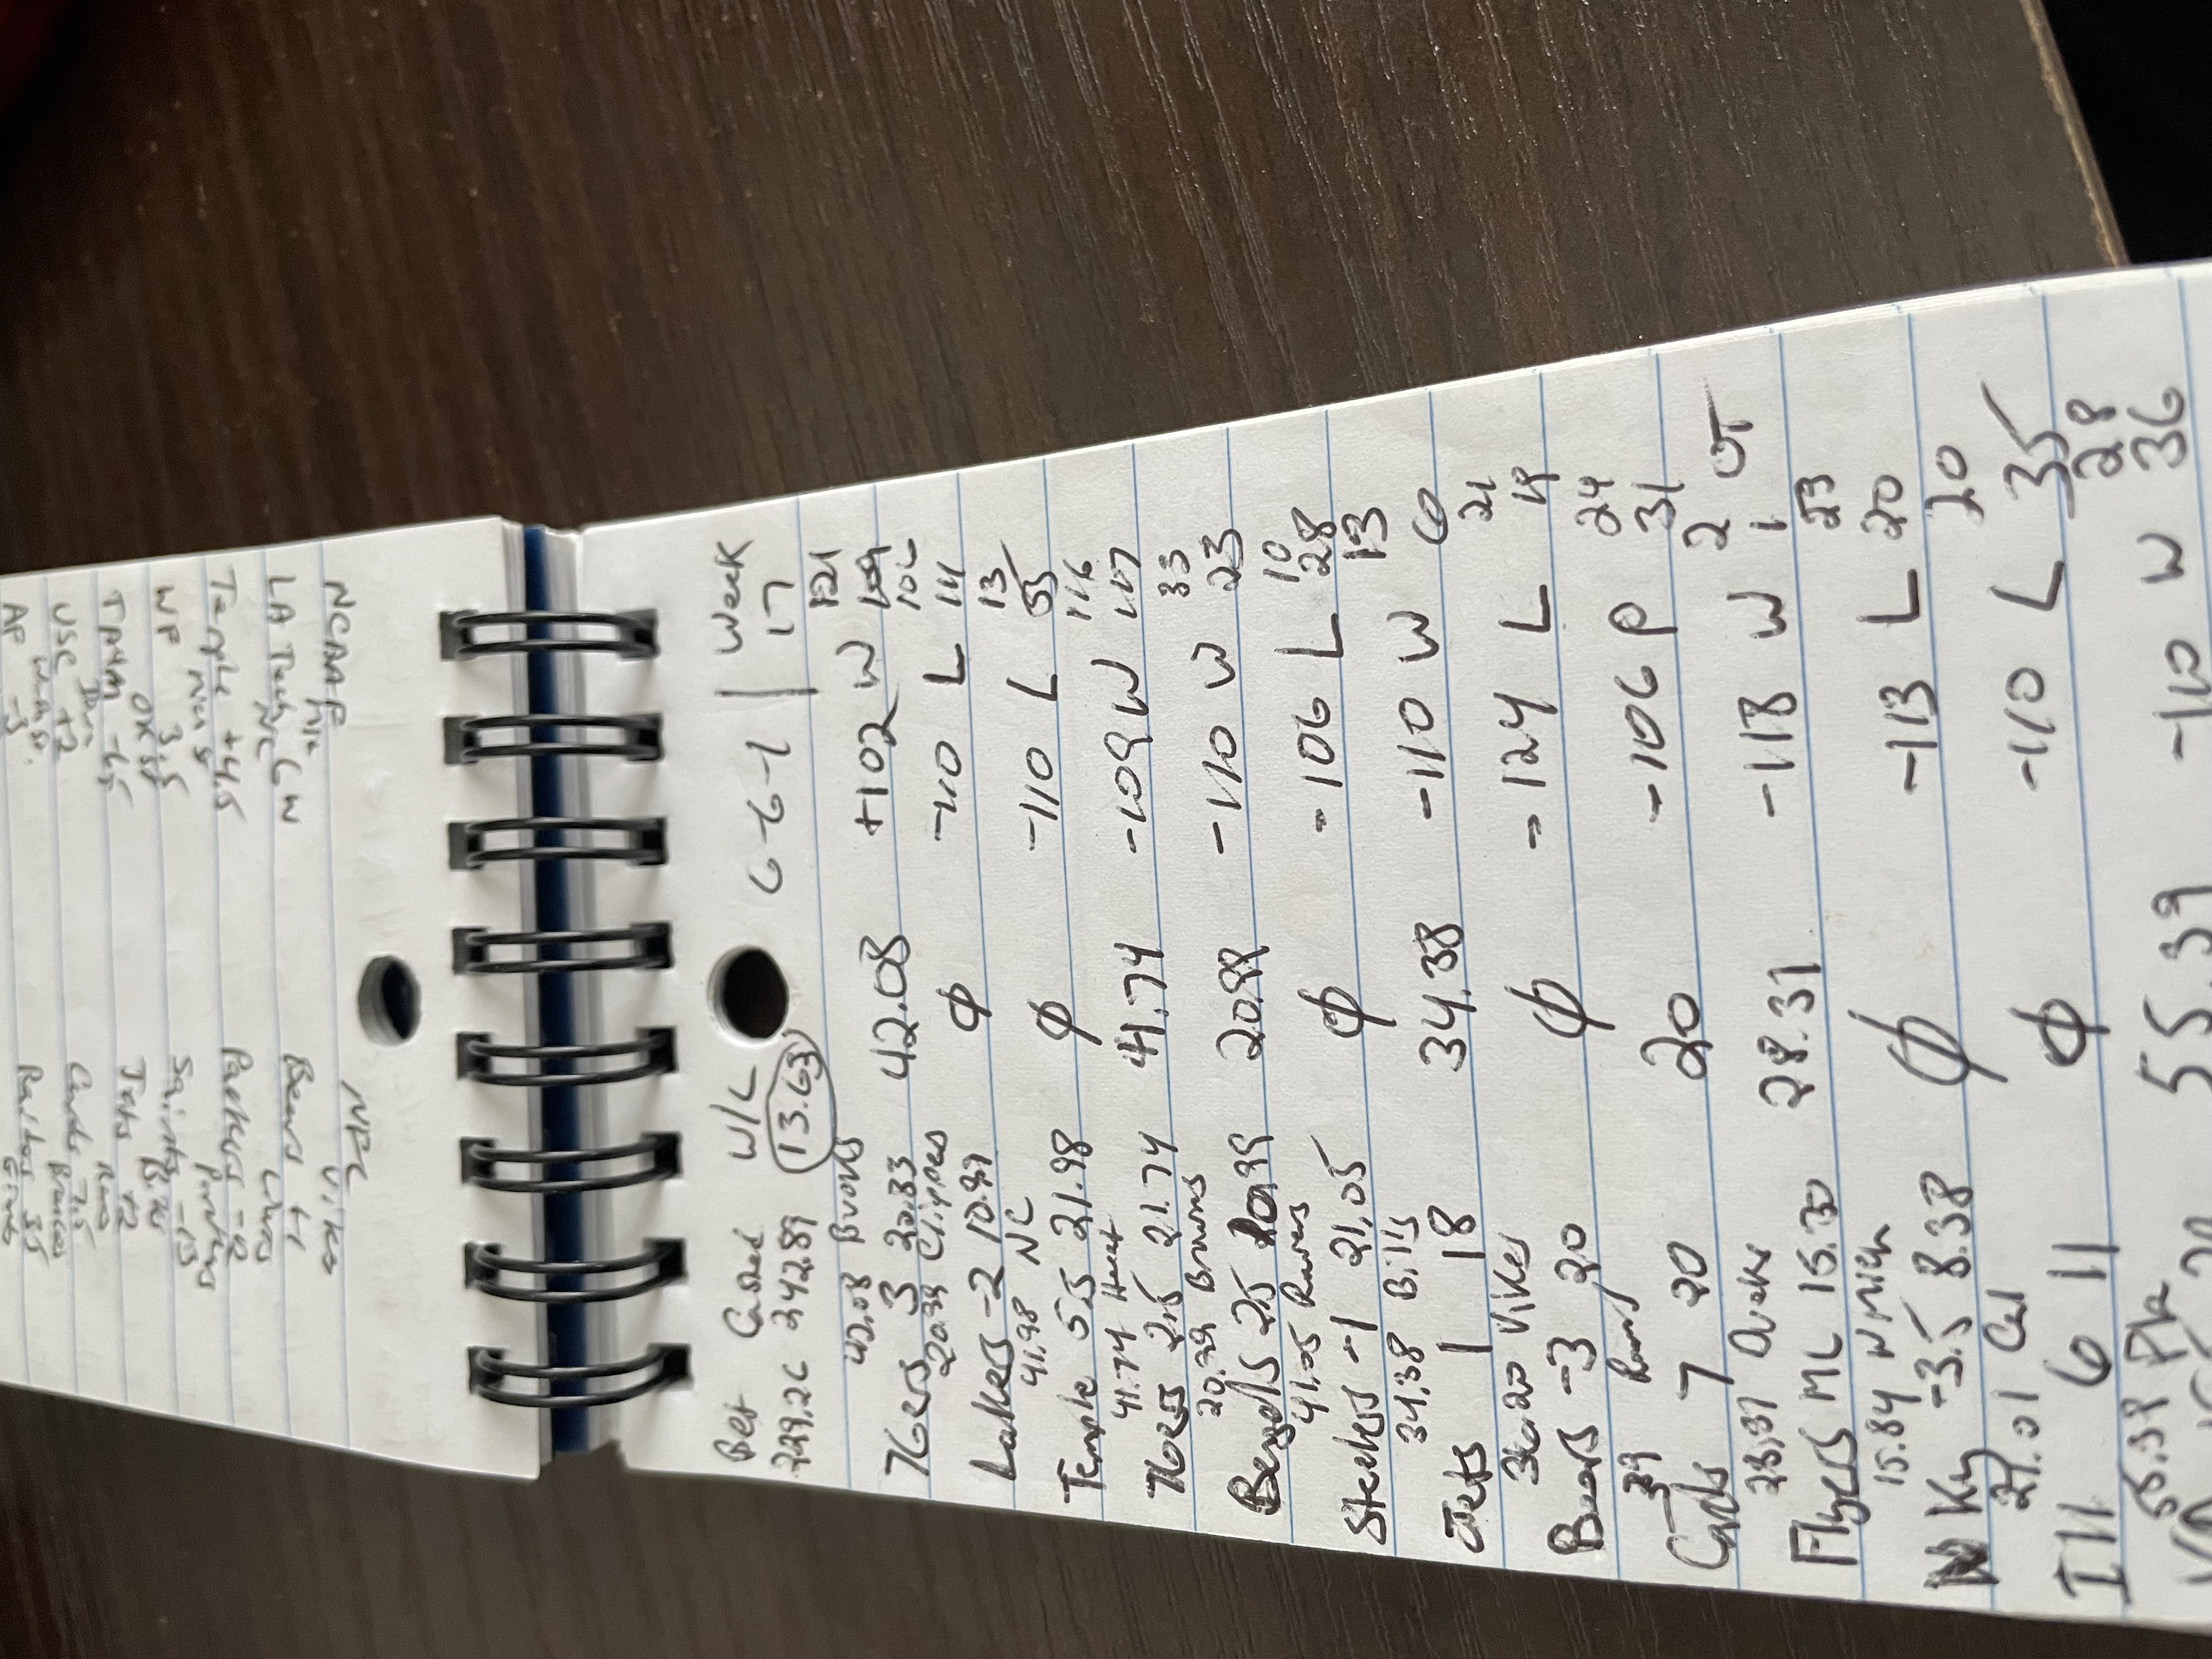 AP -3
Wash St.
Raiders 3.5
USC +2
Cards 7.5
Broncos
TA+M -6.5
OK St
Jets +2
WF 3.5
Saints -13
Mich St
Panthers
Temple +4.5
Packers -2
NC
LA Tech 6 W
Bears +1
Mia
Vikes
NCAAF
NFL
Bet Cashed W/L 6-6-1 Week
229.26 242.89 13.63 17
42.08 Bucks 121
76ers 3 20.83 42.08 +102 W 109
20.99 Clippers 106
Lakers -2 10.99 ϕ -110 L 111
41.98 NC 13
Temple 5.5 21.98 ϕ -110 L 55
41.74 Heat 116
76ers 2.5 21.74 41.74 -109 W 117
20.99 Browns 33
Bengals 2.5 10.99 20.99 -110 W 23
41.05 Ravens 10
Steelers -1 21.05 ϕ -106 L 28
34.38 Bills 13
Jets 1 18 34.38 -110 W 60
36.20 Vikes 21
Bears -3 20 ϕ -124 L 19
39 Rams 24
Cards 7 20 20 -106 P 31
28.31 Ducks 2 OT
Flyers ML 15.30 28.31 -118 W 1
15.84 W Mich 23
N Ky -3.5 8.38 ϕ -113 L 20
21.01 Cal 20
Ill 6 11 ϕ -110 L 35
55.39 Fla 28
55.39 -110 W 36